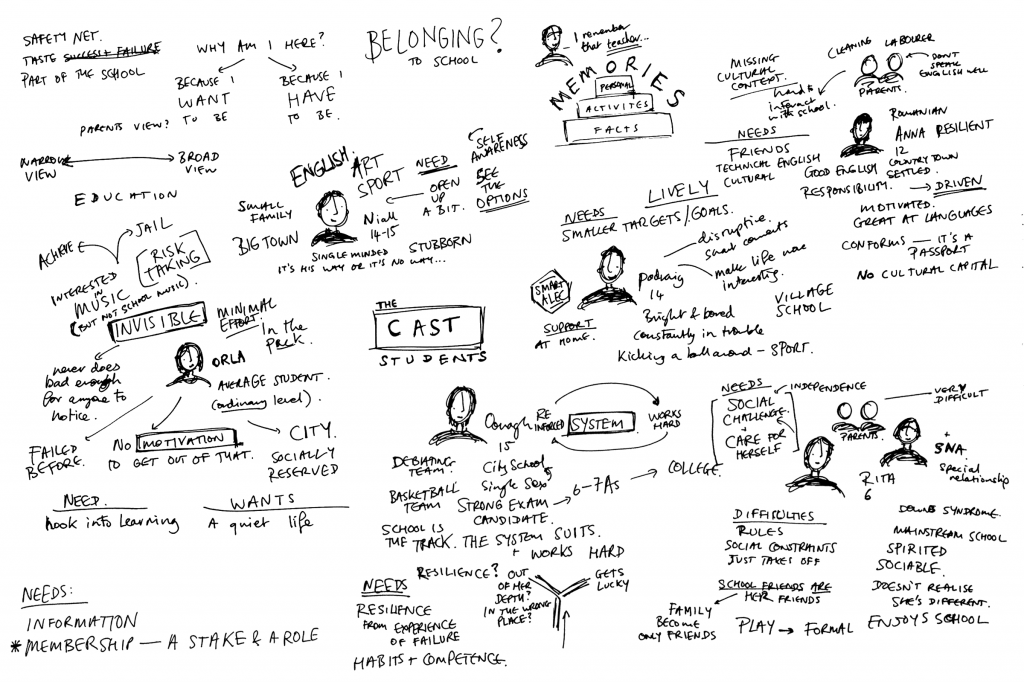 SAFETY NET.
TASTE SUCCESS & FAILURE
PART OF THE SCHOOL
WHY AM I HERE?
BECAUSE I
WANT
TO BE
BECAUSE I
HAVE
TO BE.
PARENTS VIEW?
NARROW
VIEW
BROAD
VIEW
EDUCATION
BELONGING?
TO SCHOOL
I remember
that teacher...
MEMORIES
PERSONAL
ACTIVITES
FACTS
MISSING
CULTURAL
CONTEXT.
CLEANING LABOURER
DON'T
SPEAK
ENGLISH WELL
PARENTS.
hard to
interact
with school.
NEEDS
FRIENDS
TECHNICAL ENGLISH
CULTURAL
ROMANIAN
ANNA RESILIENT
12
COUNTRY TOWN
SETTLED.
GOOD ENGLISH
RESPONSIBILITY.
DRIVEN
MOTIVATED.
GREAT AT LANGUAGES
CONFORMS — IT'S A
PASSPORT
NO CULTURAL CAPITAL
ENGLISH.
ART
SPORT
NEED
OPEN
UP
A BIT.
SELF
AWARENESS
SEE
THE
OPTIONS
SMALL
FAMILY
BIG TOWN
Niall
14-15
STUBBORN
SINGLE MINDED
IT'S HIS WAY OR IT'S NO WAY...
LIVELY
NEEDS
SMALLER TARGETS/GOALS.
disruptive.
smart comments
make life more
interesting.
Podraig
14
SMART
ALEC
SUPPORT
AT HOME.
Bright & bored
constantly in trouble
Kicking a ball around – SPORT.
VILLAGE
SCHOOL
ACHIEVE
JAIL
RISK
TAKING
INTERESTED
IN
MUSIC
(BUT NOT SCHOOL MUSIC).
INVISIBLE
MINIMAL
EFFORT.
In the
pack.
never does
bad enough
for anyone to
notice.
ORLA
AVERAGE STUDENT.
(ordinary level).
FAILED
BEFORE.
NO MOTIVATION
TO GET OUT OF THAT.
CITY.
SOCIALLY
RESERVED
NEED.
hook into learning
WANTS
A quiet life
THE
CAST
STUDENTS
Oonagh
15
City School
Single Sex
RE
INFORCED
SYSTEM
WORKS
HARD
DEBATING
TEAM.
BASKETBALL
TEAM
STRONG EXAM
CANDIDATE.
6-7As
COLLEGE.
SCHOOL IS
THE TRACK. THE SYSTEM SUITS.
+ WORKS HARD
RESILIENCE?
OUT
OF HER
DEPTH?
IN THE WRONG
PLACE?
GETS
LUCKY
NEEDS
RESILIENCE
FROM EXPERIENCE
OF FAILURE
HABITS + COMPETENCE.
NEEDS
INDEPENDENCE
SOCIAL
CHALLENGE.
+
CARE FOR
HERSELF
PARENTS.
VERY
DIFFICULT
+
SNA.
special
relationship
RITA
6
DOWNS SYNDROME.
MAINSTREAM SCHOOL
SPIRITED
SOCIABLE.
DOESN'T REALISE
SHE'S DIFFERENT.
ENJOYS SCHOOL
DIFFICULTIES
RULES
SOCIAL CONSTRAINTS
JUST TAKES OFF
SCHOOL FRIENDS ARE
HER FRIENDS
FAMILY
BECOME
ONLY FRIENDS
PLAY → FORMAL
NEEDS:
INFORMATION
*MEMBERSHIP — A STAKE & A ROLE